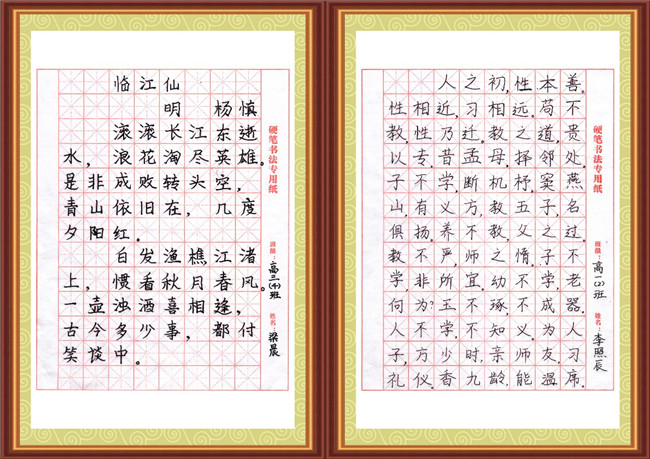 临江仙
明 杨慎
滚滚长江东逝
水，浪花淘尽英雄。
是非成败转头空，
青山依旧在，几度
夕阳红。
白发渔樵江渚
上，惯看秋月春风。
一壶浊酒喜相逢，
古今多少事，都付
笑谈中。
硬笔书法专用纸
班级：高三(4)班
姓名：梁晨
人之初,性本善.
性相近,习相远.苟不
教,性乃迁.教之道,贵
以专.昔孟母,择邻处.
子不学,断机杼.窦燕
山,有义方,教五子,名
俱扬.养不教,父之过.
教不严,师之惰.子不
学,非所宜.幼不学,老
何为?玉不琢,不成器.
人不学,不知义.为人
子,方少时,亲师友,习
礼仪.香九龄,能温席.
硬笔书法专用纸
班级：高一(2)班
姓名：李照辰